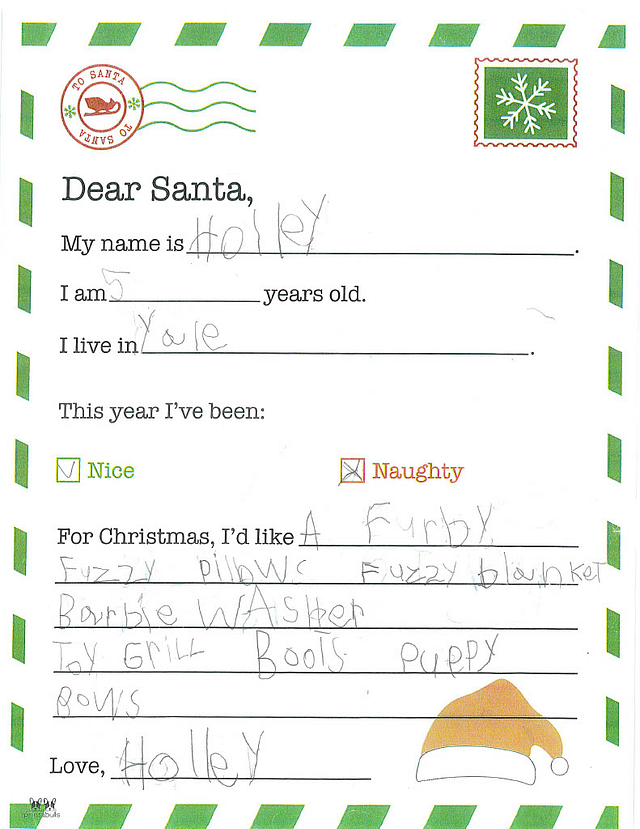 TO SANTA
TO SANTA
Dear Santa,
My name is Holley.
I am 5 years old.
I live in Yale.
This year I've been:
Nice Naughty
For Christmas, I'd like A Furby
Fuzzy pillows Fuzzy blanket
Barbie WASher
Toy GriLL Boots puppy
Bows
Love, Holley
printabulls